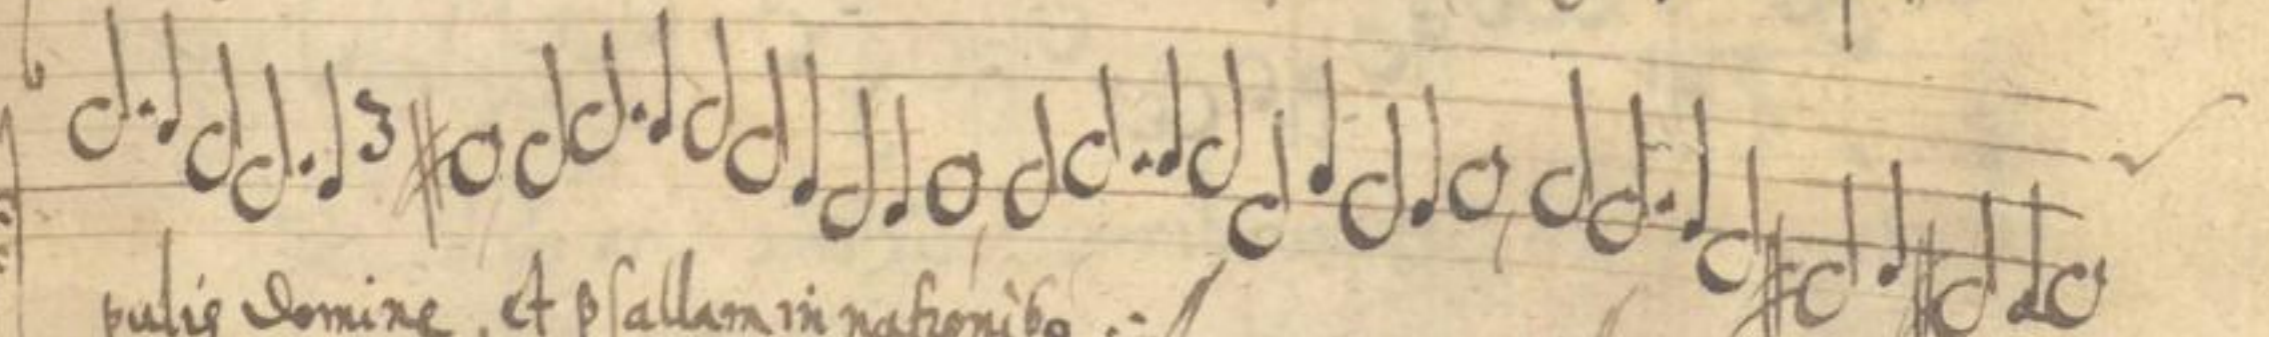 pulis Domine, et psallam in nationib9 .: